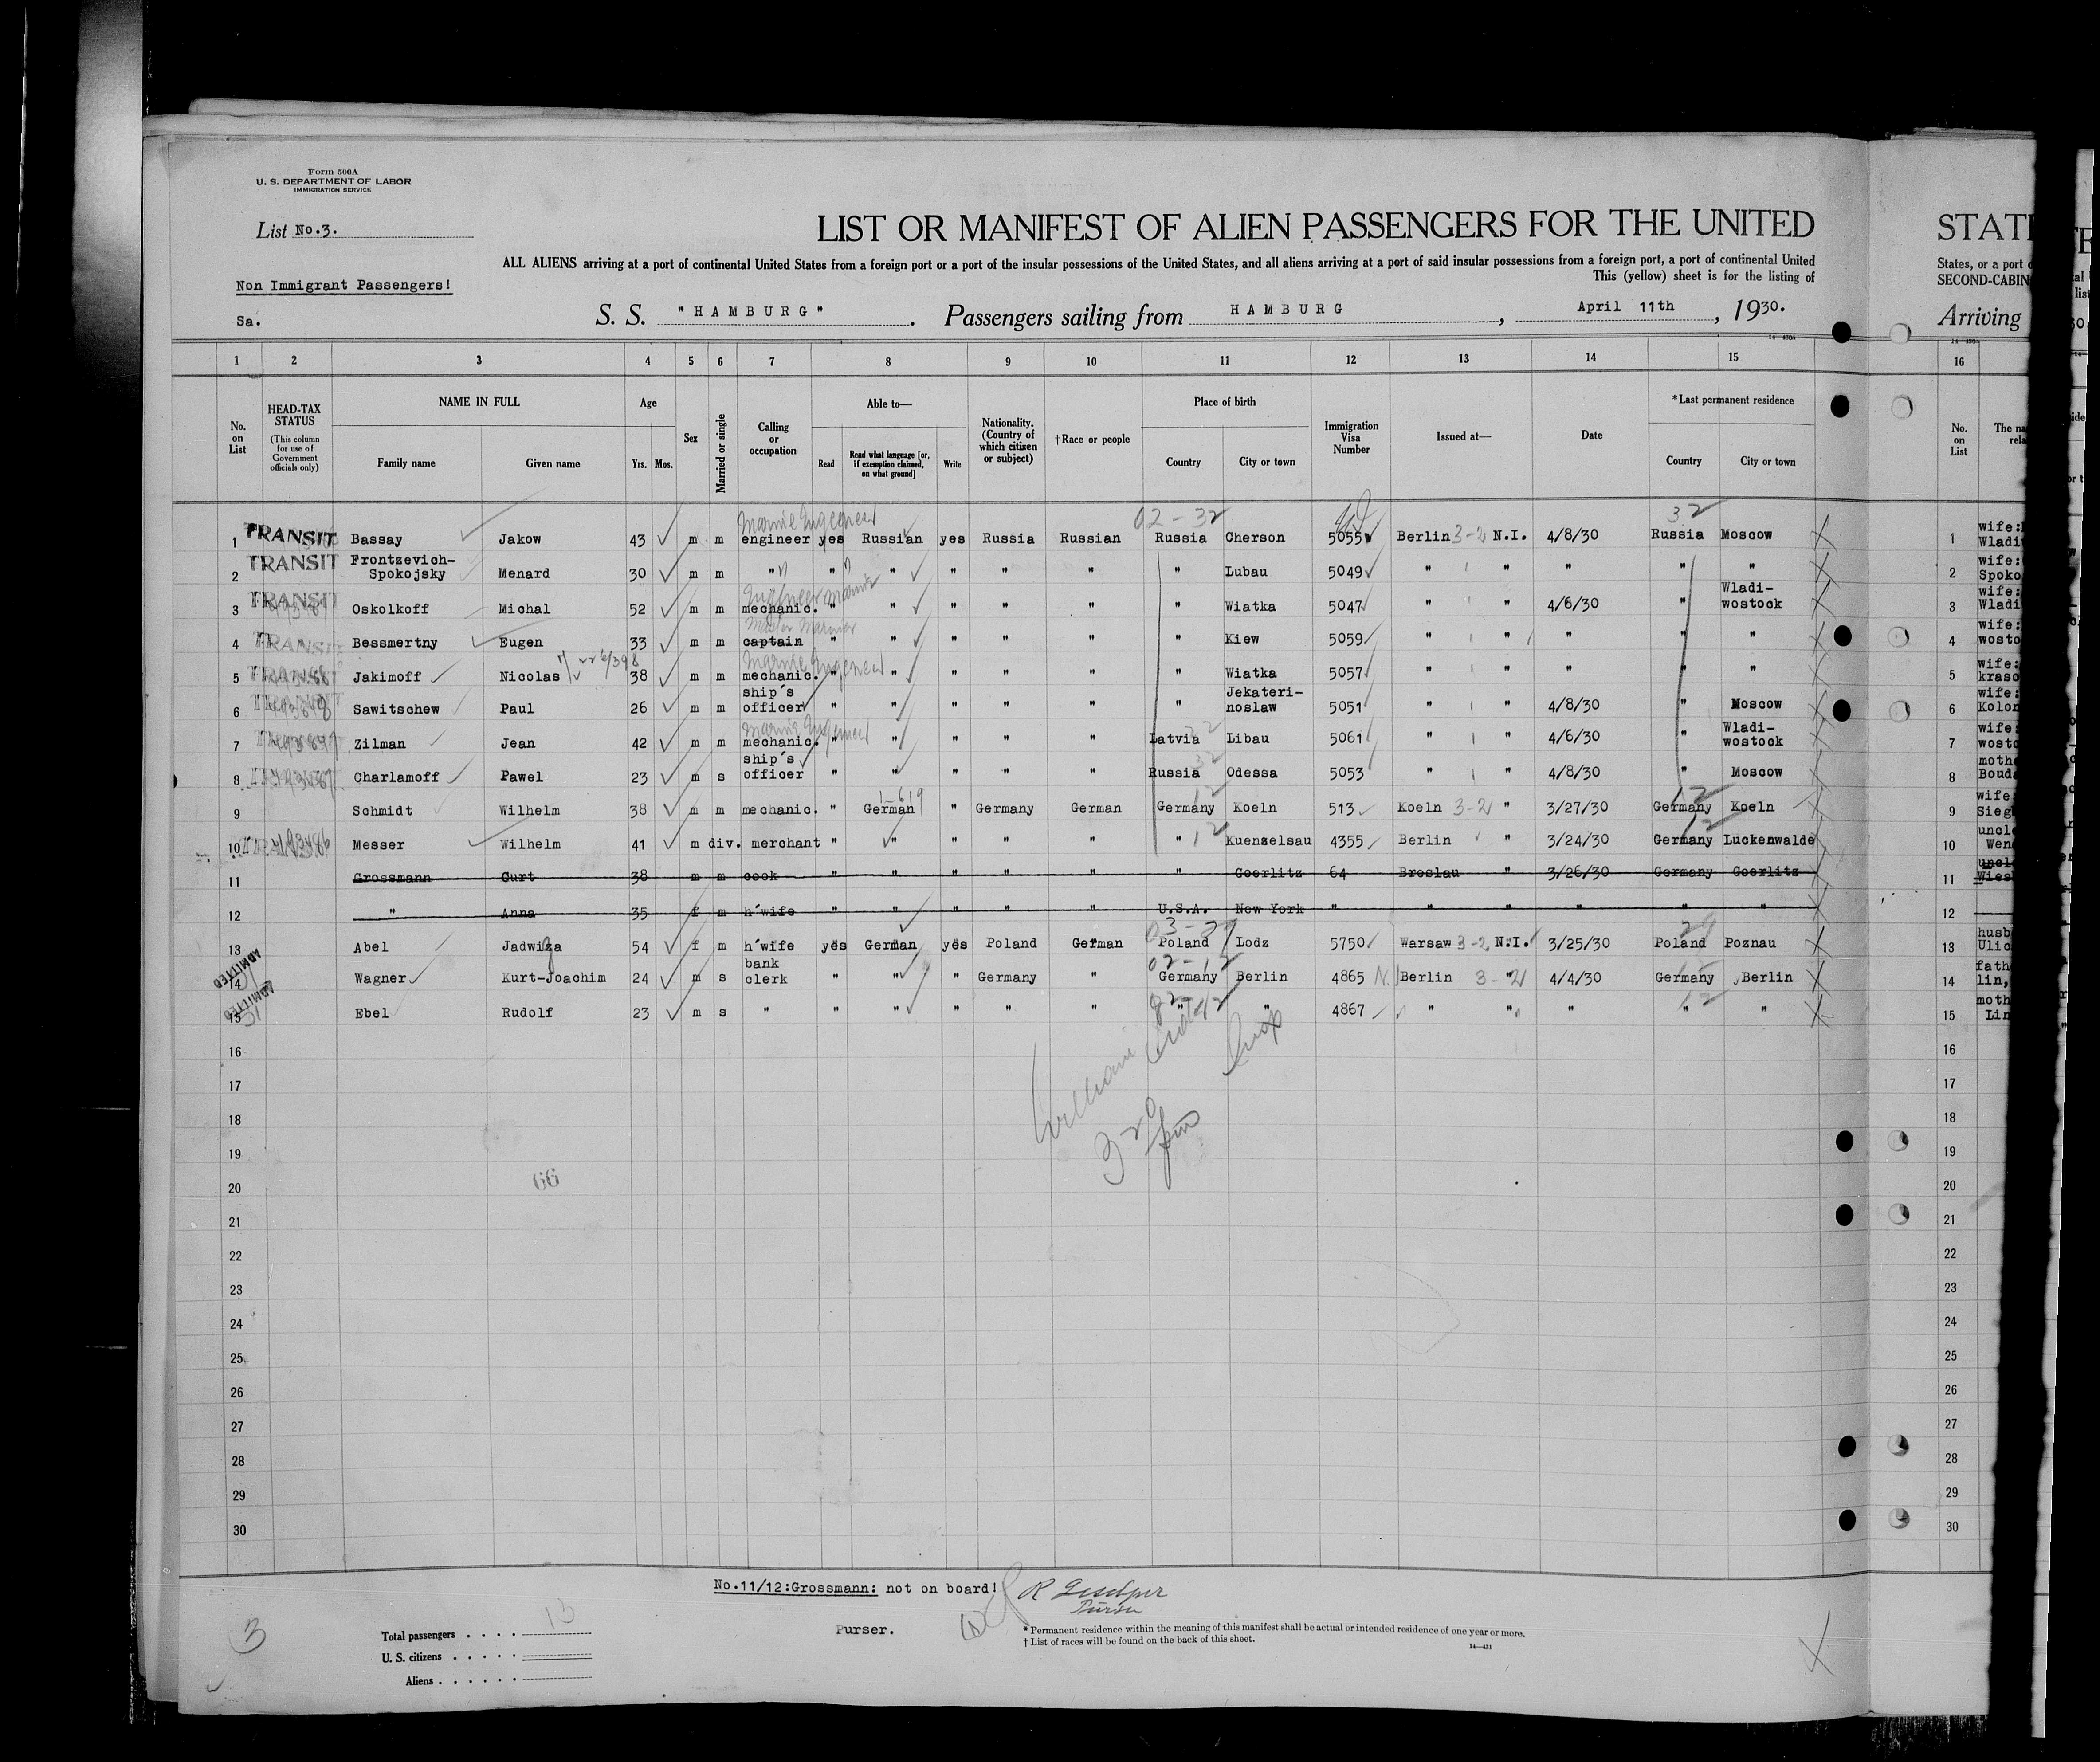 Form 500A
U. S. DEPARTMENT OF LABOR
IMMIGRATION SERVICE
List No.3.
LIST OR MANIFEST OF ALIEN PASSENGERS FOR THE UNITED
STAT
ALL ALIENS arriving at a port of continental United States from a foreign port or a port of the insular possessions of the United States, and all aliens arriving at a port of said insular possessions from a foreign port, a port of continental United
States, or a port
This (yellow) sheet is for the listing of
SECOND-CABIN
Non Immigrant Passengers!
Sa.
S. S. "HAMBURG". Passengers sailing from HAMBURG, April 11th, 1930.
Arriving
1 2 3 4 5 6 7 8 9 10 11 12 13 14 15 16
No. on List
HEAD-TAX STATUS
(This column for use of Government officials only)
NAME IN FULL
Family name
Given name
Age
Yrs. Mos.
Sex
Married or single
Calling or occupation
Able to—
Read
Read what language [or, if exemption claimed, on what ground]
Write
Nationality. (Country of which citizen or subject)
†Race or people
Place of birth
Country
City or town
Immigration Visa Number
Issued at—
Date
*Last permanent residence
Country
City or town
No. on List
The na
rela
02-32
32
1 TRANSIT Bassay Jakow 43 m m engineer yes Russian yes Russia Russian Russia Cherson 5055 Berlin 3-2 N.I. 4/8/30 Russia Moscow 1 wife: Wladi
2 TRANSIT Frontzevich-Spokojsky Menard 30 m m " " " " " " " Lubau 5049 " " " " " 2 wife: Spoko
3 TRANSIT Oskolkoff Michal 52 m m mechanic. " " " " " " Wiatka 5047 " " 4/6/30 " Wladi-wostock 3 wife: Wladi
4 TRANSIT Bessmertny Eugen 33 m m captain " " " " " " Kiew 5059 " " " " " 4 wife: wosto
5 TRANSIT Jakimoff Nicolas 38 m m mechanic. " " " " " " Wiatka 5057 " " " " " 5 wife: kraso
6 TRANSIT Sawitschew Paul 26 m m ship's officer " " " " " " Jekateri-noslaw 5051 " " 4/8/30 " Moscow 6 wife: Kolon
7 Zilman Jean 42 m m mechanic. " " " " " Latvia Libau 5061 " " 4/6/30 " Wladi-wostock 7 wife: wosto
8 Charlamoff Pawel 23 m s ship's officer " " " " " Russia Odessa 5053 " " 4/8/30 " Moscow 8 moth Bouda
9 Schmidt Wilhelm 38 m m mechanic. " German " Germany German Germany Koeln 513 Koeln 3-2 " 3/27/30 Germany Koeln 9 wife: Sieg
10 Messer Wilhelm 41 m div. merchant " " " " " " Kuenzelsau 4355 Berlin " 3/24/30 Germany Luckenwalde 10 uncle Wend
11 Grossmann Curt 38 m m cook " " " " " " Goerlitz 64 Breslau " 3/26/30 Germany Goerlitz 11 uncle Wies
12 " Anna 35 f m h'wife " " " " " U.S.A. New York " " " " " " 12
13 Abel Jadwiga 54 f m h'wife yes German yes Poland German Poland Lodz 5750 Warsaw 3-2 N.I. 3/25/30 Poland Poznau 13 husb Ulic
14 ADMITTED Wagner Kurt-Joachim 24 m s bank clerk " " " Germany " Germany Berlin 4865 Berlin 3-2 " 4/4/30 Germany Berlin 14 fath lin,
15 ADMITTED Ebel Rudolf 23 m s " " " " " " " " 4867 " " " " " 15 moth Lin
16 16
17 17
18 18
19 19
20 66 20
21 21
22 22
23 23
24 24
25 25
26 26
27 27
28 28
29 29
30 30
No.11/12:Grossmann: not on board!
Purser.
* Permanent residence within the meaning of this manifest shall be actual or intended residence of one year or more.
† List of races will be found on the back of this sheet.
14—431
3
Total passengers . . . . 13
U. S. citizens . . . . .
Aliens . . . . . .